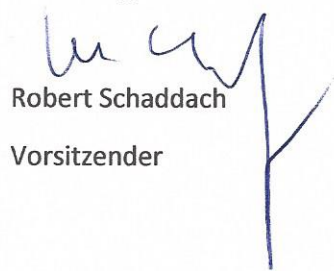 Robert Schaddach
Vorsitzender